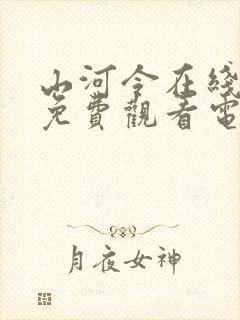 山河令在綫
免費觀看電
月夜女神